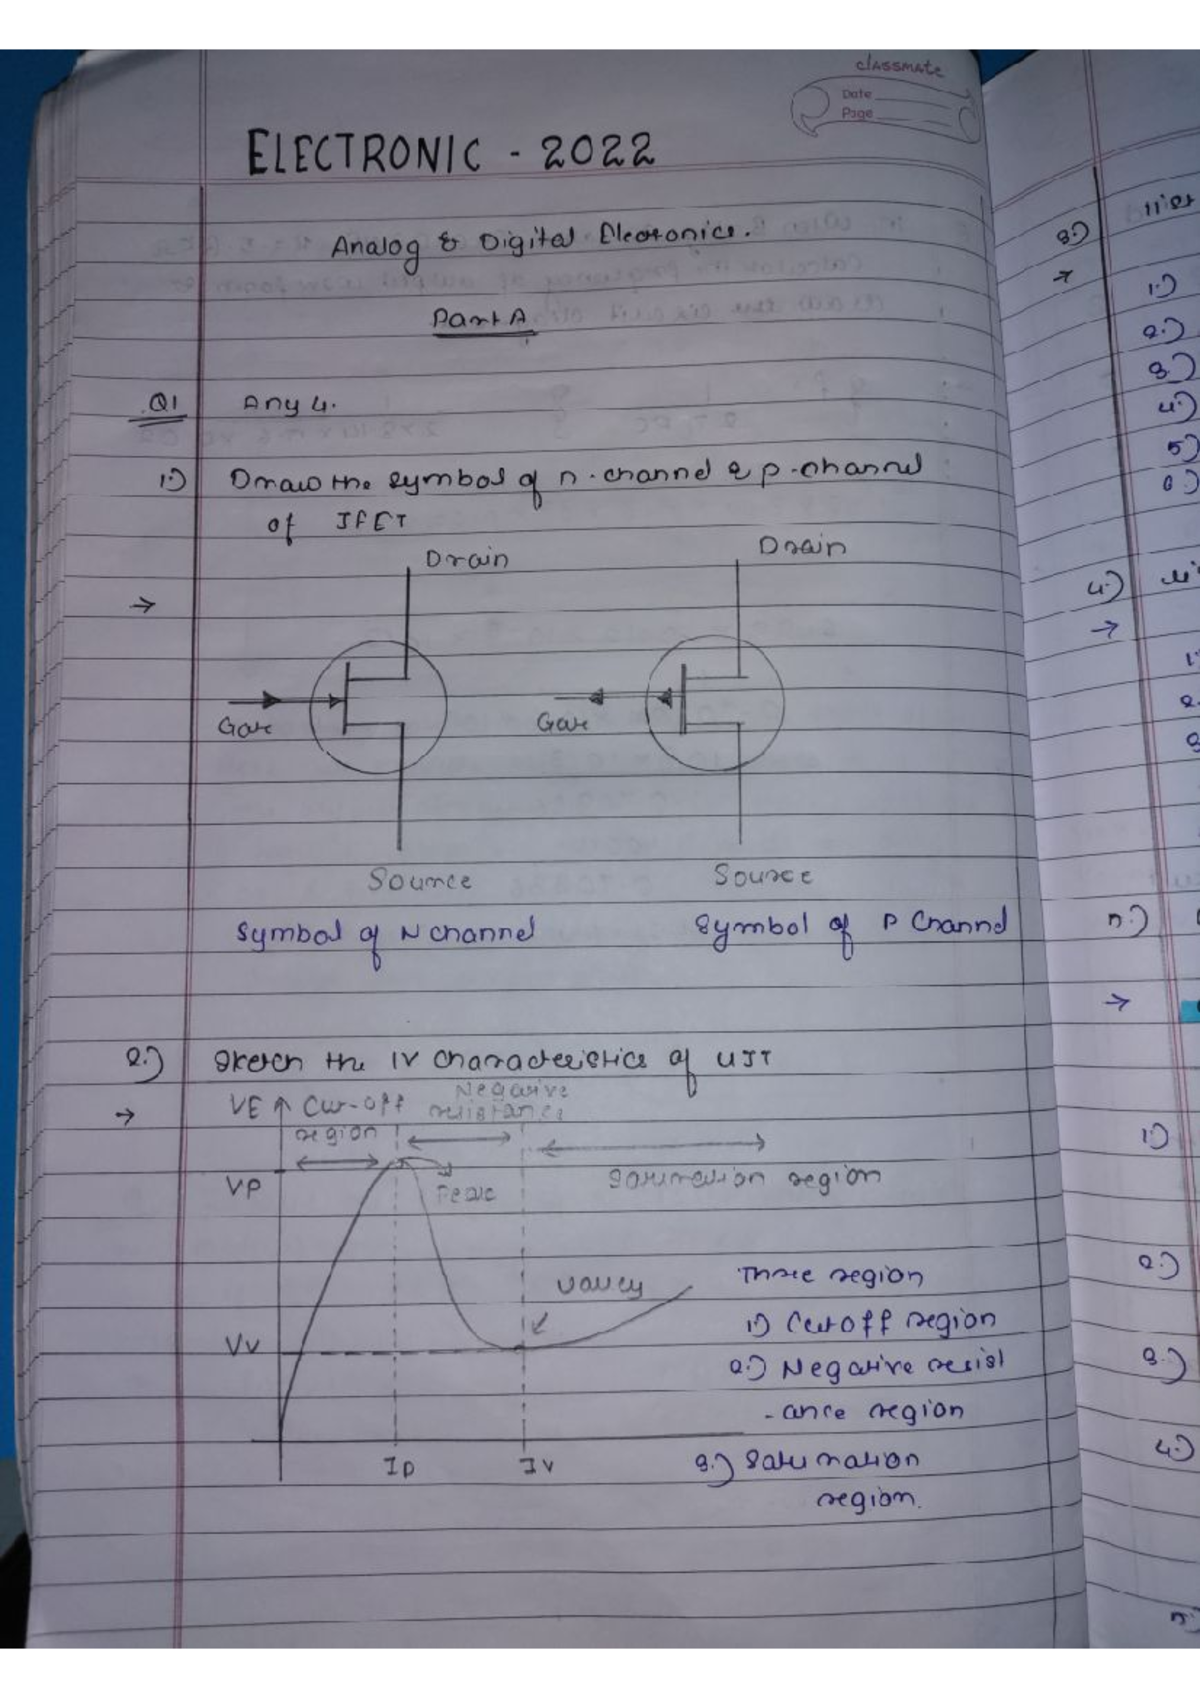 classmate
Date
Page
ELECTRONIC - 2022
Analog & Digital Electronics.
Part A
Q1 Any 4.
1.) Draw the symbol of n-channel & p-channel
of JFET
Drain Drain
→
Gate Gate
Source Source
Symbol of N channel Symbol of P Channel
2.) Sketch the IV characteristics of UJT
→ VE Cut-off Negative
region resistance
VP Peak Saturation region
Valley Three region
VV 1) Cutoff region
2.) Negative resist
-ance region
IP IV 3.) Saturation
region.
3)
→ 1.)
2.)
3.)
4.)
5)
6.)
4.)
→